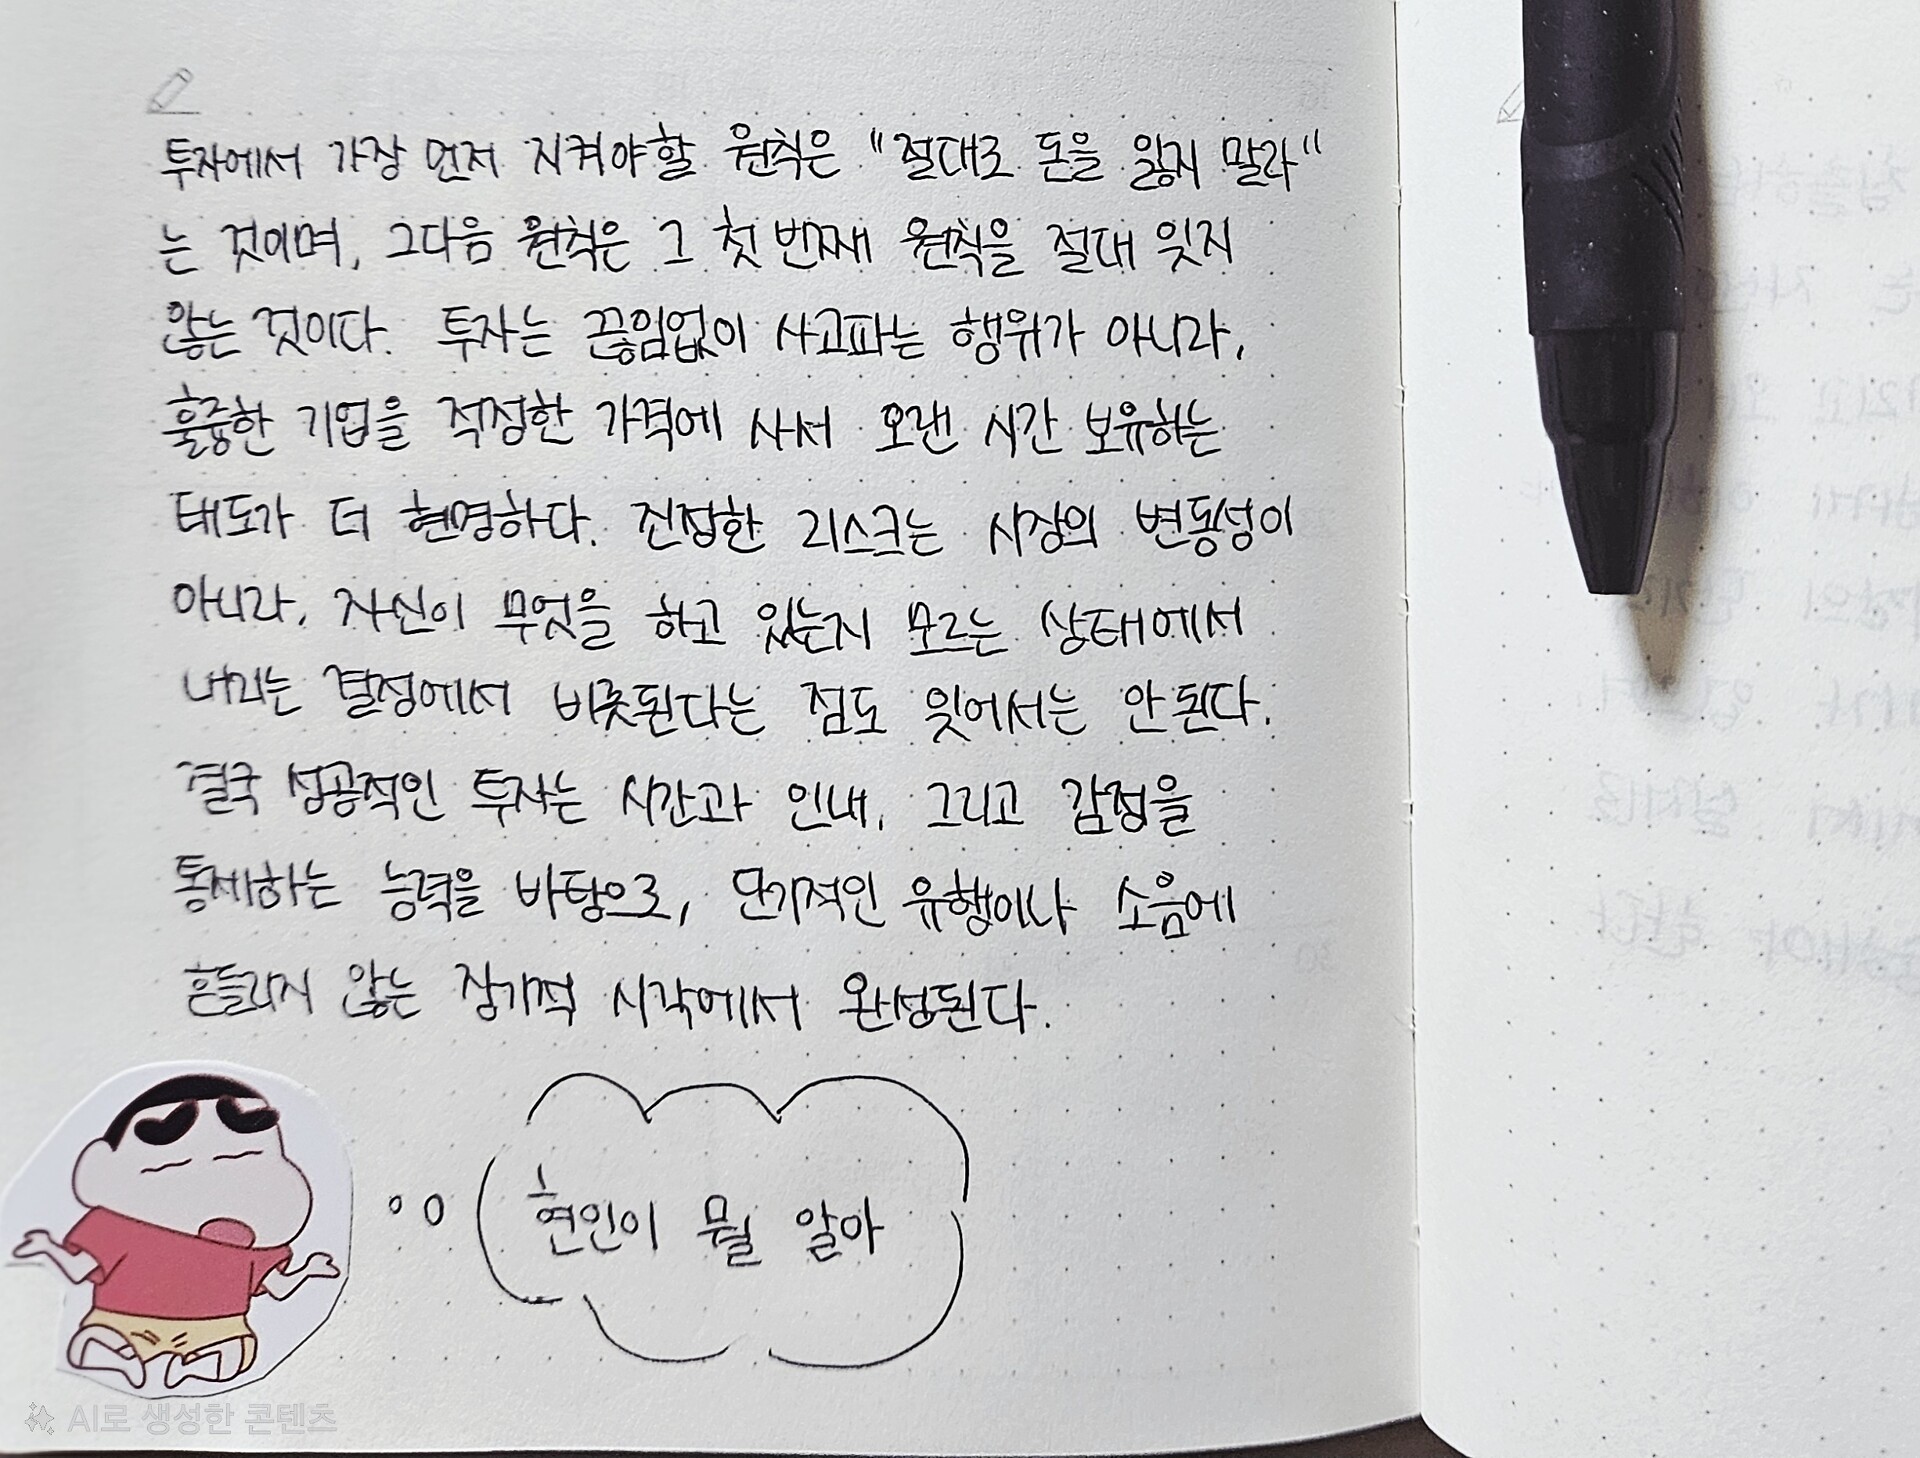 투자에서 가장 먼저 지켜야할 원칙은 "절대로 돈을 잃지 말라"
는 것이며, 그다음 원칙은 그 첫 번째 원칙을 절대 잊지
않는 것이다. 투자는 끊임없이 사고파는 행위가 아니라,
훌륭한 기업을 적정한 가격에 사서 오랜 시간 보유하는
태도가 더 현명하다. 진정한 리스크는 시장의 변동성이
아니라, 자신이 무엇을 하고 있는지 모르는 상태에서
내리는 결정에서 비롯된다는 점도 잊어서는 안된다.
결국 성공적인 투자는 시간과 인내, 그리고 감정을
통제하는 능력을 바탕으로, 단기적인 유행이나 소음에
흔들리지 않는 장기적 시각에서 완성된다.
현인이 뭘 알아
AI로 생성한 콘텐츠